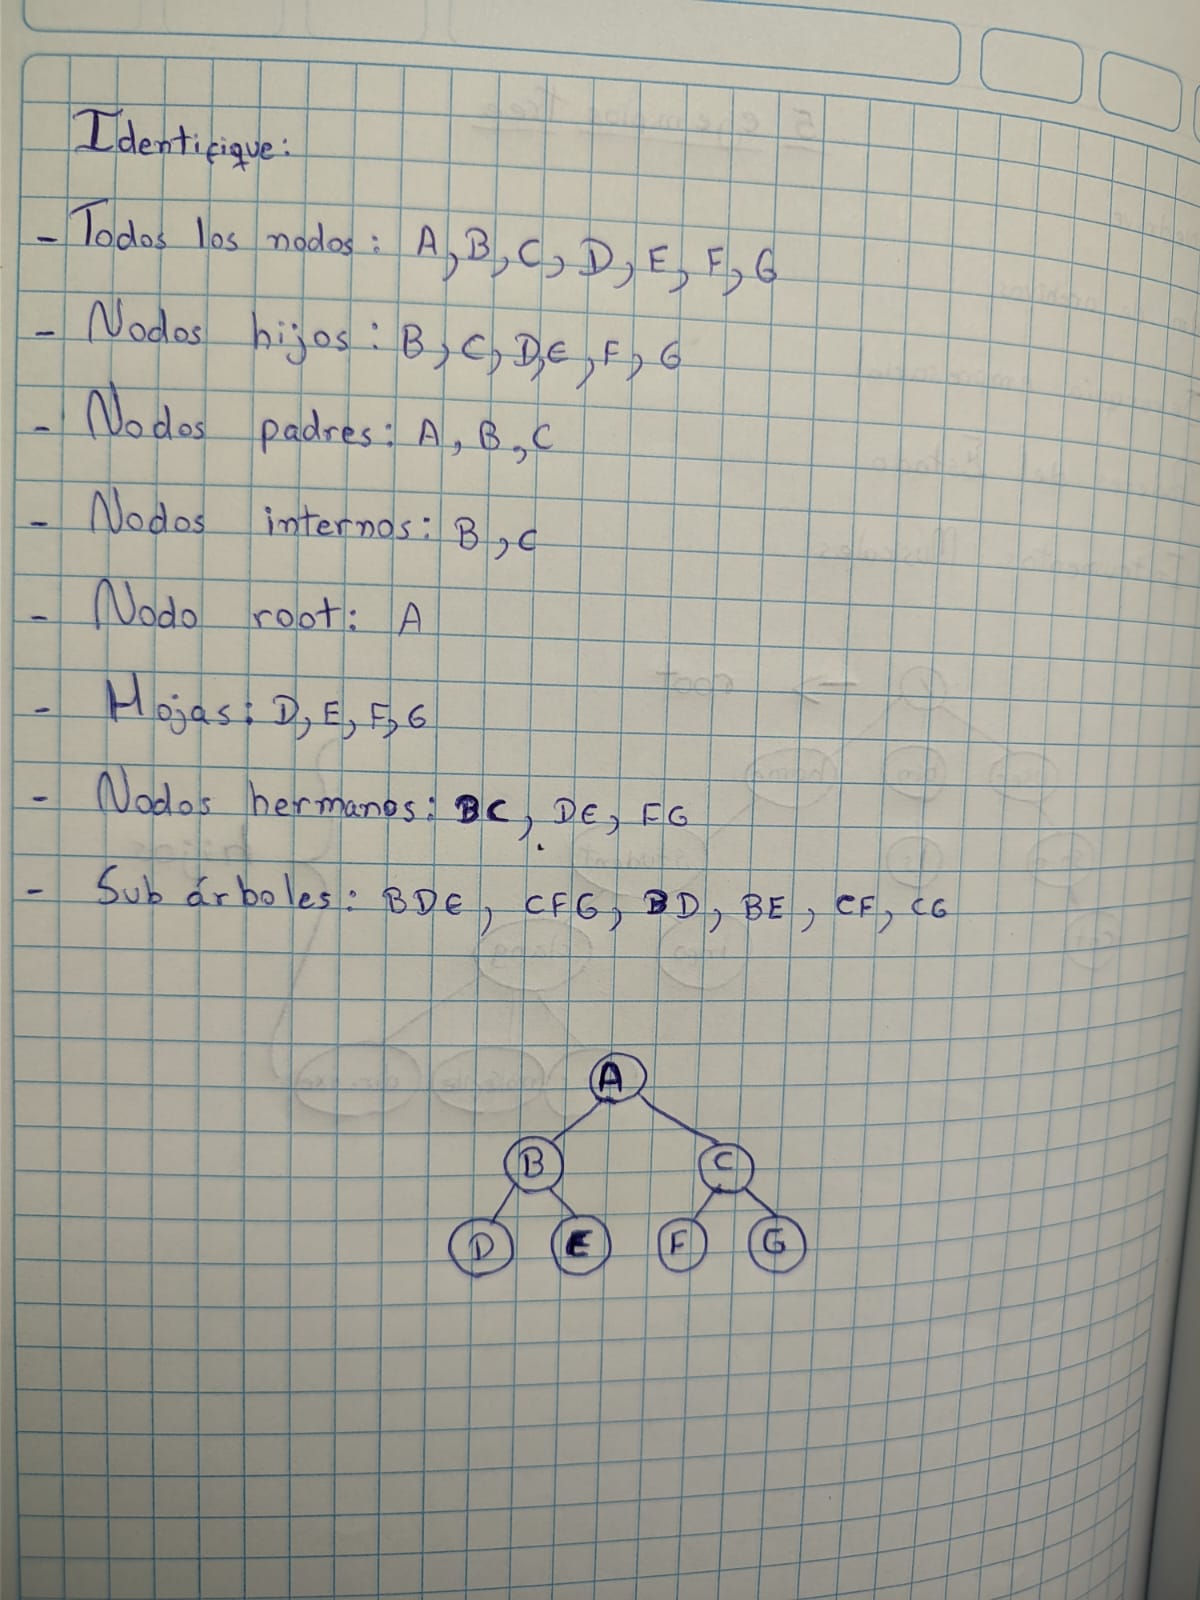 Identifique:
- Todos los nodos: A, B, C, D, E, F, G
- Nodos hijos: B, C, D, E, F, G
- Nodos padres: A, B, C
- Nodos internos: B, C
- Nodo root: A
- Hojas: D, E, F, G
- Nodos hermanos: BC, DE, FG
- Sub árboles: BDE, CFG, BD, BE, CF, CG
A
B C
D E F G